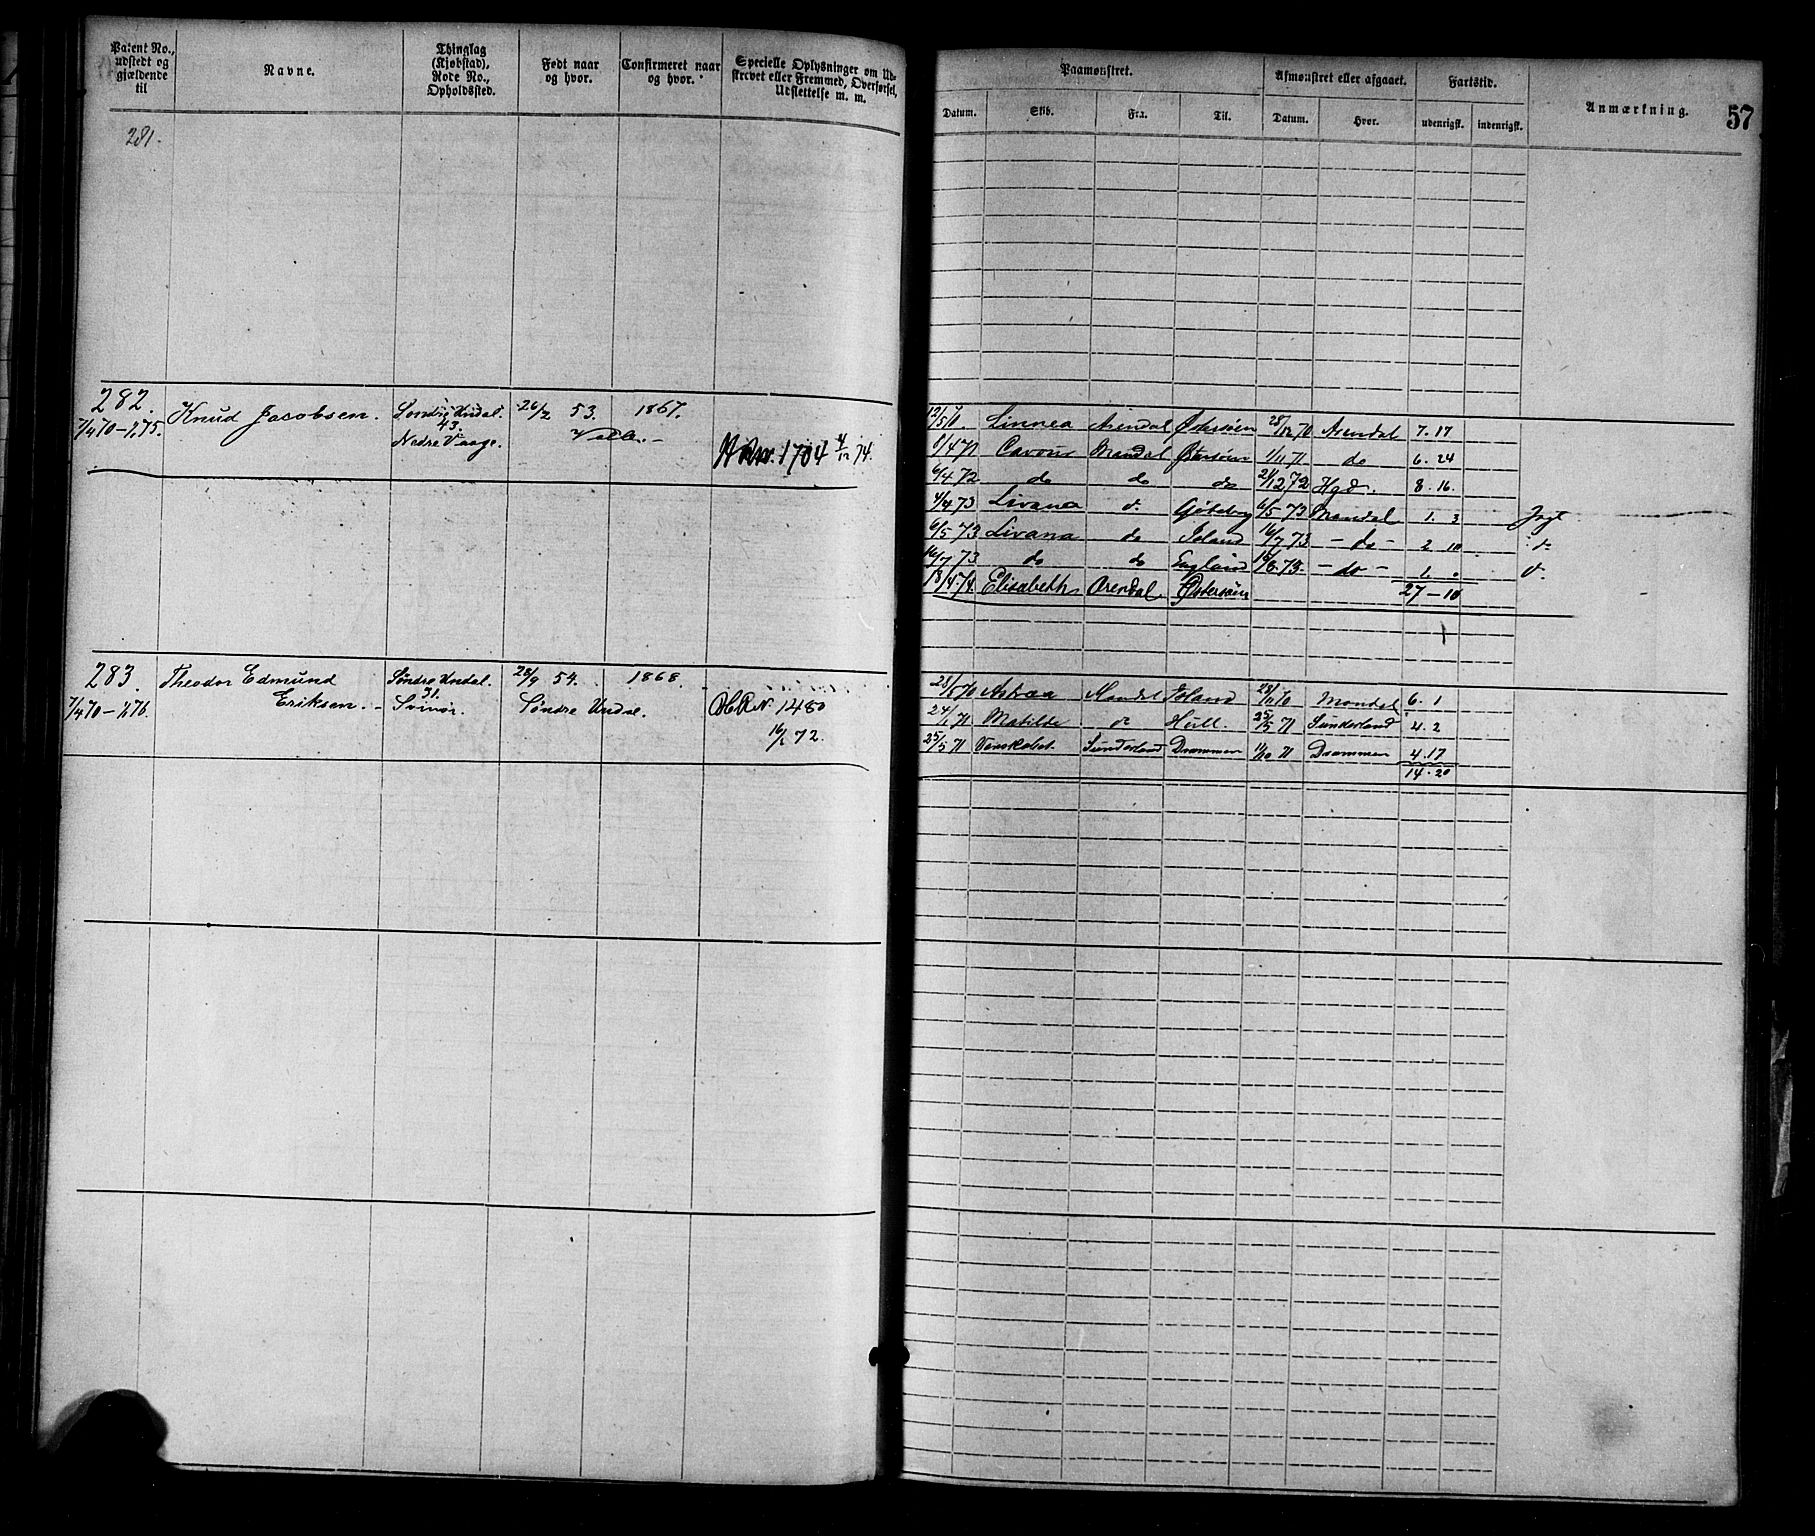 Patent No., udstedt og gjældende til
Navne.
Thinglag (Kjøbstad), Rode No., Opholdssted.
Født naar og hvor.
Confirmeret naar og hvor.
Specielle Oplysninger om Udskrevet eller Fremmed, Overførsel, Udslettelse m. m.
Paamønstret.
Afmønstret eller afgaaet.
Fartstid.
Anmærkning.
57
Datum.
Skib.
Fra.
Til.
Datum.
Hvor.
udenrigsk.
indenrigsk.
281.
282.
7/4 70 – 1/1 75.
Knud Jacobsen.
Söndre Undal.
43.
Nedre Vaage.
26/2 53.
Valle.
1867.
1704 4/12 74.
12/5 70. Linnea Arendal Østersöen 28/12 70 Arendal 7. 17
8/4 71 Cavour Mandal Østersöen 1/11 71 do 6. 24
6/4 72 do do do 21/12 72 8. 16.
4/4 73 Livanea d. Göteborg 6/5 73 Mandal 1. 3 Jagt
6/5 73 Livana do Island 16/7 73 – do – 2 10 do
16/7 73 do do England 15/8 73. – do – 1. 0 d.
18/4 74. Elisabeth Arendal Østersöen
27 – 10
283.
7/4 70 – 1/1 76.
Theodor Edmund
Eriksen. –
Söndre Undal.
31.
Svinör.
28/9 54.
Söndre Undal.
1868.
1480
16/1 72.
28/5 70 Astræa Mandal Island 28/11 70 Mandal 6. 1
24/1 71 Matilde do Hull. 25/5 71 Sunderland 4. 2
25/5 71 Venskabet. Sunderland Drammen 11/10 71 Drammen 4. 17
14. 20